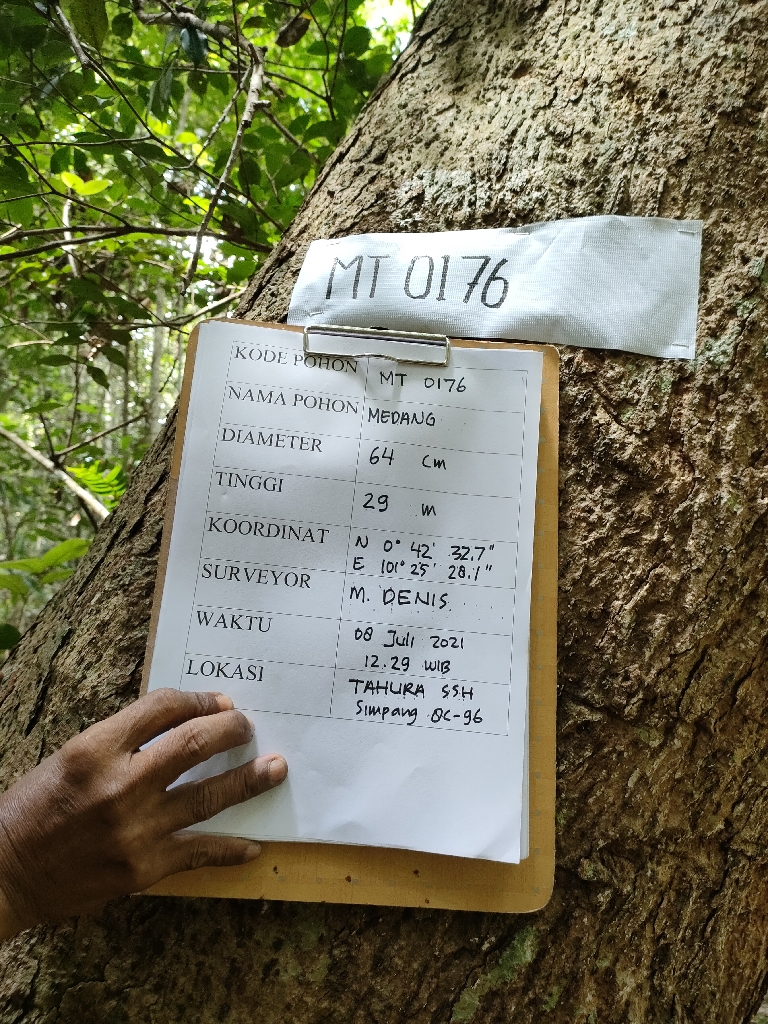 MT 0176
KODE POHON MT 0176
NAMA POHON MEDANG
DIAMETER 64 cm
TINGGI 29 m
KOORDINAT N 0° 42' 32.7"
E 101° 25' 28.1"
SURVEYOR M. DENIS
WAKTU 08 Juli 2021
12.29 WIB
LOKASI TAHURA SSH
Simpang QC-96